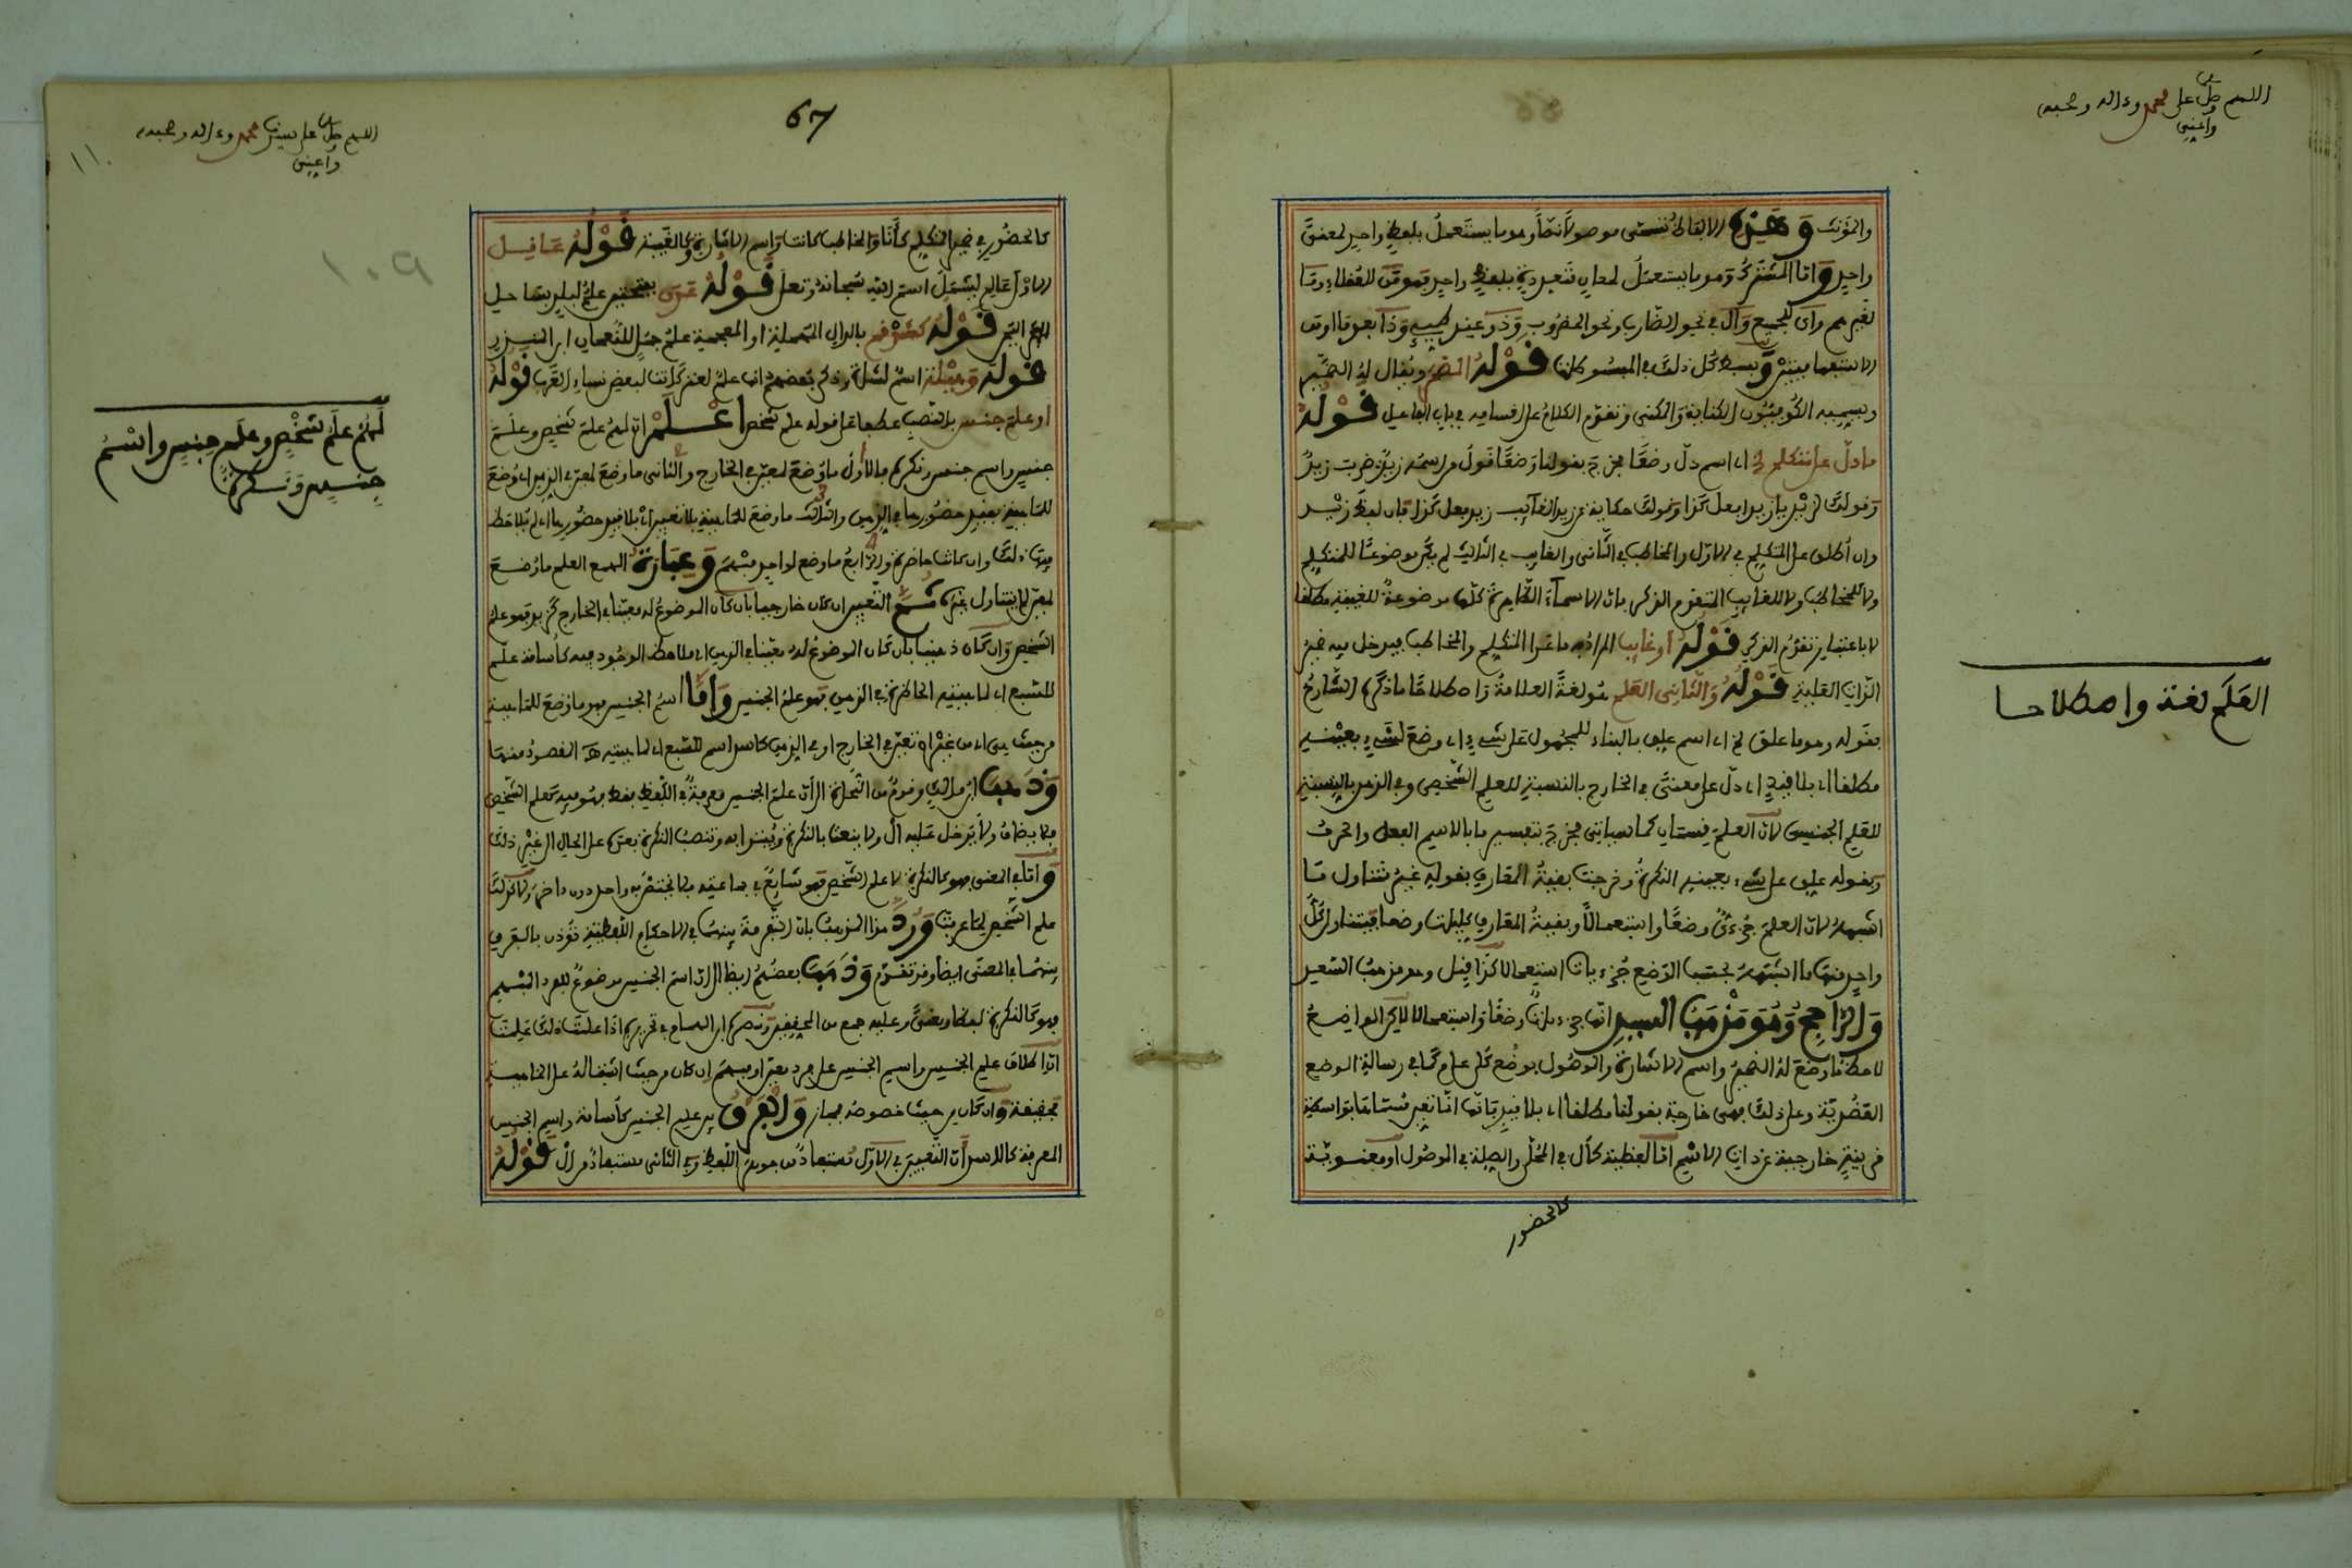 اللهم صل على محمد وءاله وصحبه
واعني
والمؤنث وهذه الالفاظ تسمى موصولا نصا وهو ما يستعمل بلفظ واحد لمعنى
واحد واما المشترك وهو ما يستعمل لمعان متعددة بلفظ واحد فهو من للعقلاء وما
لغيرهم واى للجميع وال فى نحو الضارب ونحو المضروب وذو عند طيئ وذا بعد ما او من
الاستفهاميتين وبسط كل ذلك فى المبسوطات قوله المضمر ويقال له الضمير
ويسميه الكوفيون الكناية والمكنى وتقدم الكلام على اقسامه فى باب الفاعل قوله
ما دل على متكلم الخ اى اسم دل وضعا فخرج بقولنا وضعا قول من اسمه زيد زيد ضرب
وقولك لزيد يا زيد افعل كذا وقولك حكاية عن زيد الغايب زيد فعل كذا فان لفظ زيد
وان اطلق على المتكلم فى الاول والمخاطب فى الثانى والغايب فى الثالث لم يكن موضوعا للمتكلم
ولا للمخاطب ولا للغايب المتقدم الذكر فان الاسماء الظاهرة كلها موضوعة للغيبة مطلقا
لا باعتبار تقدم الذكر قوله او غايب المراد به ما عدا المتكلم والمخاطب فيدخل فيه ضمير
الذات العلية قوله والثانى العلم هو لغة العلامة واصطلاحا ما ذكره الشارح
بقوله وهو ما علق الخ اى اسم علق بالبناء للمجهول على شىء اى وضع لشىء بعينه
مطلقا اى بلا قيد اى دل على معنى فى الخارج بالنسبة للعلم الشخصى وفى الذهن بالنسبة
للعلم الجنسى لان العلم قسمان كما سياتى فخرج بتفسير ما بالاسم الفعل والحرف
وبقوله علق على شىء بعينه النكرة وخرجت بقية المعارف بقوله غير متناول ما
اشبهه لان العلم جزءى وضعا واستعمالا وبقية المعارف كليات وضعا فيتناول كل
واحد منها ما اشبهه بحسب الوضع جزءيات استعمالا كذا قيل وهو مذهب السعد
والراجح وهو مذهب السيد انها جزءيات وضعا واستعمالا لاكن الواضع
لاحظ ما وضع له الضمير واسم الاشارة والموصول بوضع كلى عام كما فى رسالة الوضع
العضدية وعلى ذلك فهى خارجة بقولنا مطلقا اى بلا قيد فانها انما تعين مسماها بواسطة
قرينة خارجية عن ذات الاسم اما لفظية كال فى المحلى والصلة فى الموصول او معنوية
كالحضور
العلم لغة واصطلاحا
67
اللهم صل على سيدنا محمد وءاله وصحبه
واعني
كالحضور فى ضمير المتكلم كانا والمخاطب كانت واسم الاشارة وكالغيبة قوله عاقل
الاولى عالم ليشمل اسم الله سبحانه وتعلى قوله عدن بفتحتين علم لبلد بساحل
اليمن قوله كشدقم بالدال المهملة او المعجمة علم جمل للنعمان ابن المنذر
قوله وهيلة اسم لشاة وذكر بعضهم انها علم لعنز كانت لبعض نساء العرب قوله
او علم جنس بالنصب عطفا على قوله علم شخص اعلم ان لهم علم شخص وعلم
جنس واسم جنس ونكرة فالاول ما وضع لمعين فى الخارج والثانى ما وضع لمعين فى الذهن اى وضع
للماهية بقيد حضورها فى الذهن والثالث ما وضع للماهية بلا تعيين اى بلا قيد حضورها اى لم يلاحظ
فيها ذلك وان كانت حاضرة والرابع ما وضع لواحد مبهم وعبارة الهمع العلم ما وضع
لمعين لا يتناول غيره ثم التعيين ان كان خارجيا بان كان الموضوع له معينا فى الخارج كزيد فهو علم
الشخص وان كان ذهنيا بان كان الموضوع له معينا فى الذهن اى ملاحظ الوجود فيه كاسامة علم
للسبع اى لماهيته الحاضرة فى الذهن فهو علم الجنس واما اسم الجنس فهو ما وضع للماهية
من حيث هى اى من غير ان تعين فى الخارج او فى الذهن كاسد اسم للسبع اى لماهيته هـ المقصود منها
وذهب ابن مالك وقوم من النحاة الى ان علم الجنس معرفة فى اللفظ فقط فهو فيه كعلم الشخص
فلا يضاف ولا يدخل عليه ال ولا ينعت بالنكرة ويبتدا به وتنصب النكرة بعده على الحال الى غير ذلك
واما فى المعنى فهو كالنكرة لا علم الشخص فهو شايع فى جماعته فلا يختص به واحد دون ءاخر ولا كذلك
علم الشخص لما عرفت ورد هذا المذهب بان التفرقة بينهما فى الاحكام اللفظية تؤذن بالفرق
بينهما فى المعنى ايضا وقد تقدم وذهب بعضهم ايضا الى ان اسم الجنس موضوع للفرد المبهم
فهو كالنكرة لفظا ومعنى وعليه جمع من المحققين ونصره ابن الهمام فى تحريره اذا علمت ذلك علمت
ان اطلاق علم الجنس واسم الجنس على فرد معين او مبهم ان كان من حيث اشتماله على الماهية
فحقيقة وان كان من حيث خصوصه فمجاز والفرق بين علم الجنس كاسامة واسم الجنس
المعرفة كالاسد ان التعيين فى الاول مستفاد من جوهر اللفظ وفى الثانى مستفاد من ال قوله
لهم علم شخص وعلم جنس واسم
جنس ونكرة